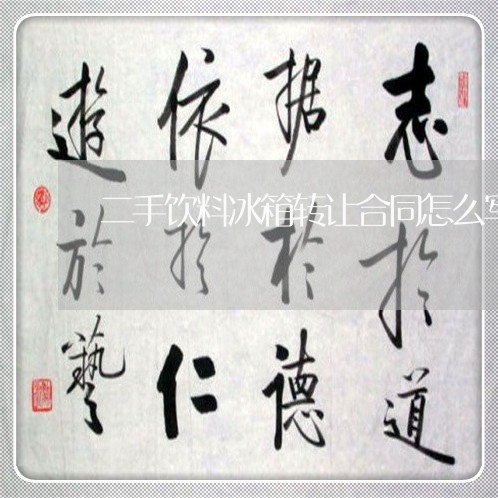 志於道
据於德
依於仁
遊於藝
二手饮料冰箱转让合同怎么写